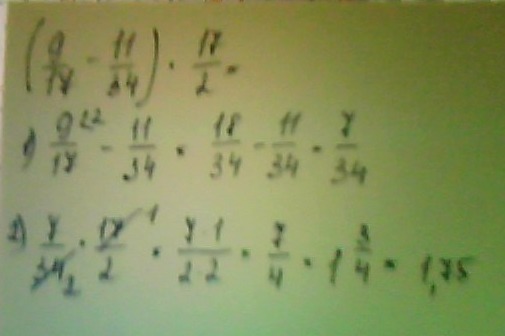 (9/17 - 11/34) · 17/2 =
1) 9/17 ^2,2 - 11/34 = 18/34 - 11/34 = 7/34
2) 7/34 2 · 17/2 ^1 = 7·1/2·2 = 7/4 = 1 3/4 = 1,75